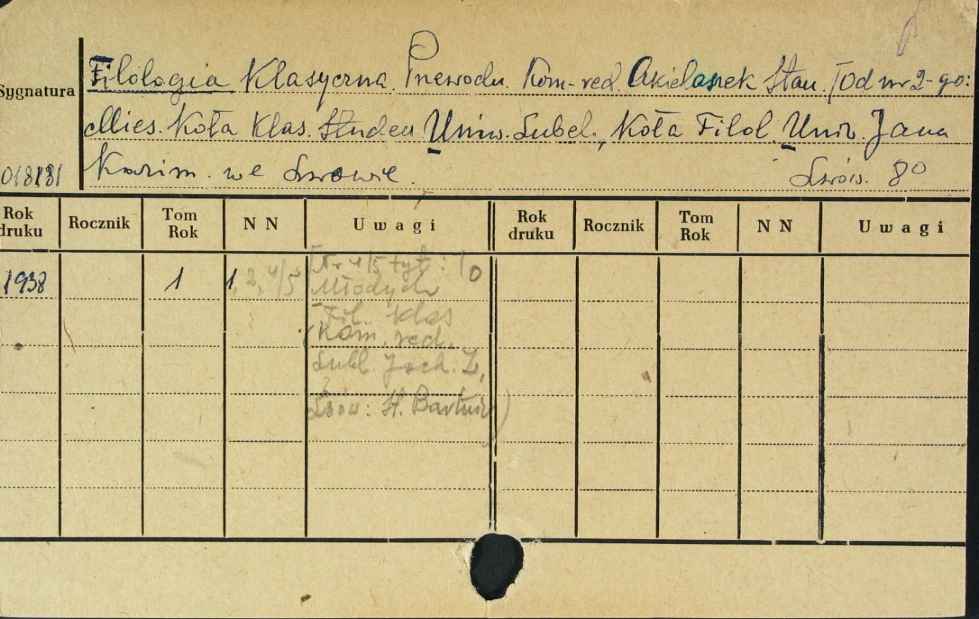 Filologia Klasyczna. Przewodn. Kom-red. Akielaszek Stan. [Od nr 2-go:
Sygnatura
Mies. Koła Klas. Studen Uniw. Lubel., Koła Filol. Uniw. Jana
Kazim. we Lwowie. Lwów. 8°
Rok druku Rocznik Tom Rok N N Uwagi Rok druku Rocznik Tom Rok N N Uwagi
1938 1 1, 2, 4/5 [Nr 4/5 tyt:
Młodych
Fil. Klas
(Kom. red.
Lubl. J
Lwów: St.